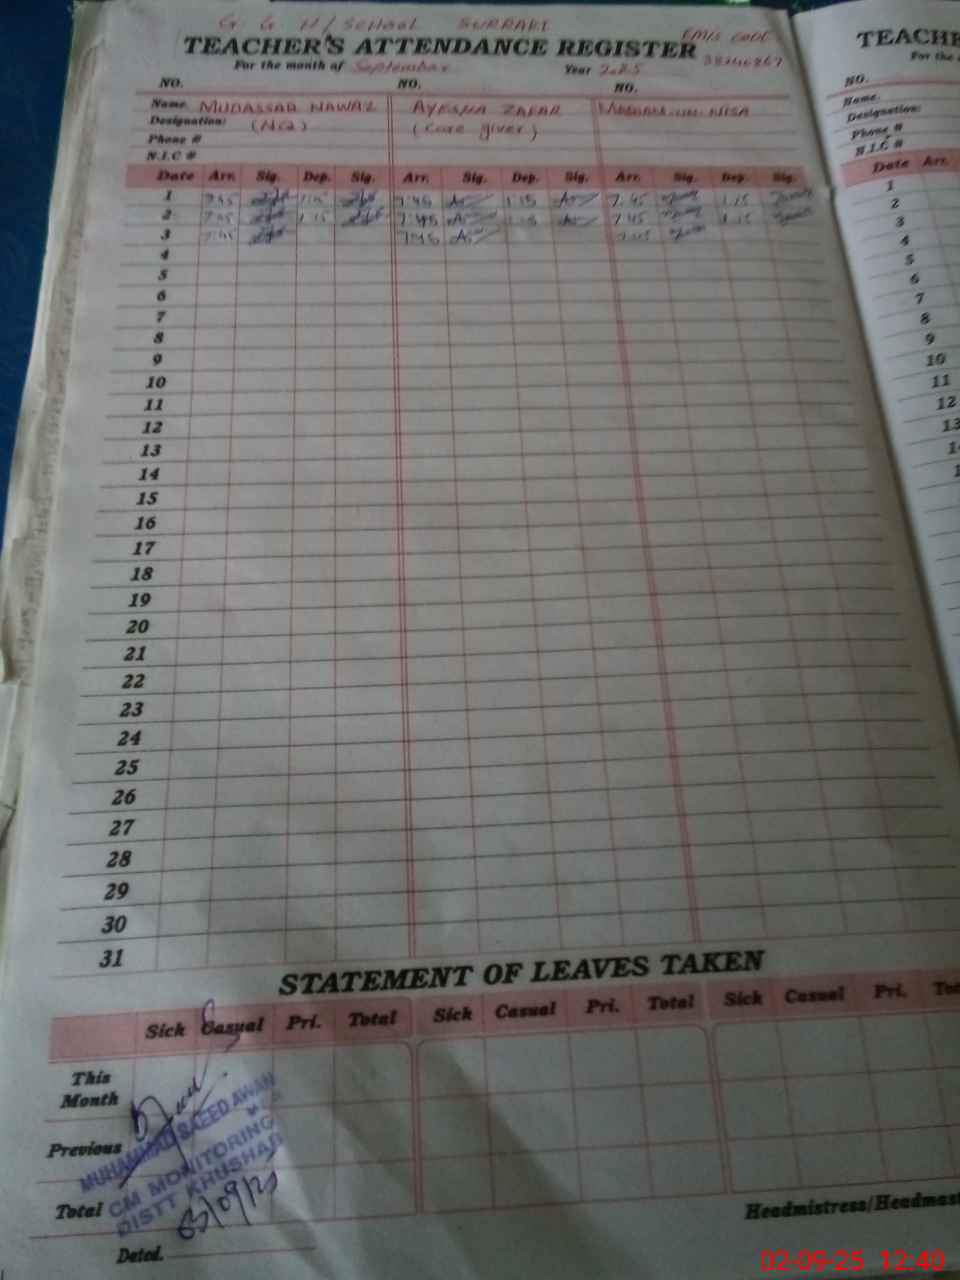 G. G. H/School SURRAKI
EMIS CODE
TEACHER'S ATTENDANCE REGISTER
For the month of September Year 2025
NO. NO. NO.
Name. MUDASSAR NAWAZ AYESHA ZAFAR
Designation: (NQ) (care giver)
Phone #
N.I.C #
Date Arr. Sig. Dep. Sig. Arr. Sig. Dep. Sig. Arr. Sig. Dep. Sig.
1 7.45 1.15 7.45 1.15 7.45 1.15
2 7.45 1.15 7.45 1.15 7.45 1.15
3 7.45 7.45 7.45
4
5
6
7
8
9
10
11
12
13
14
15
16
17
18
19
20
21
22
23
24
25
26
27
28
29
30
31
STATEMENT OF LEAVES TAKEN
Sick Casual Pri. Total Sick Casual Pri. Total Sick Casual Pri.
This
Month
Previous
Total
MUHAMMAD SAEED AWAN
CM MONITORING
DISTT KHUSHAB
03/09/25
Headmistress/Headmast
Dated.
TEACHE
For the
NO.
Name.
Designation:
Phone #
N.I.C #
Date Arr.
1
2
3
4
5
6
7
8
9
10
11
12
13
02-09-25 12:40